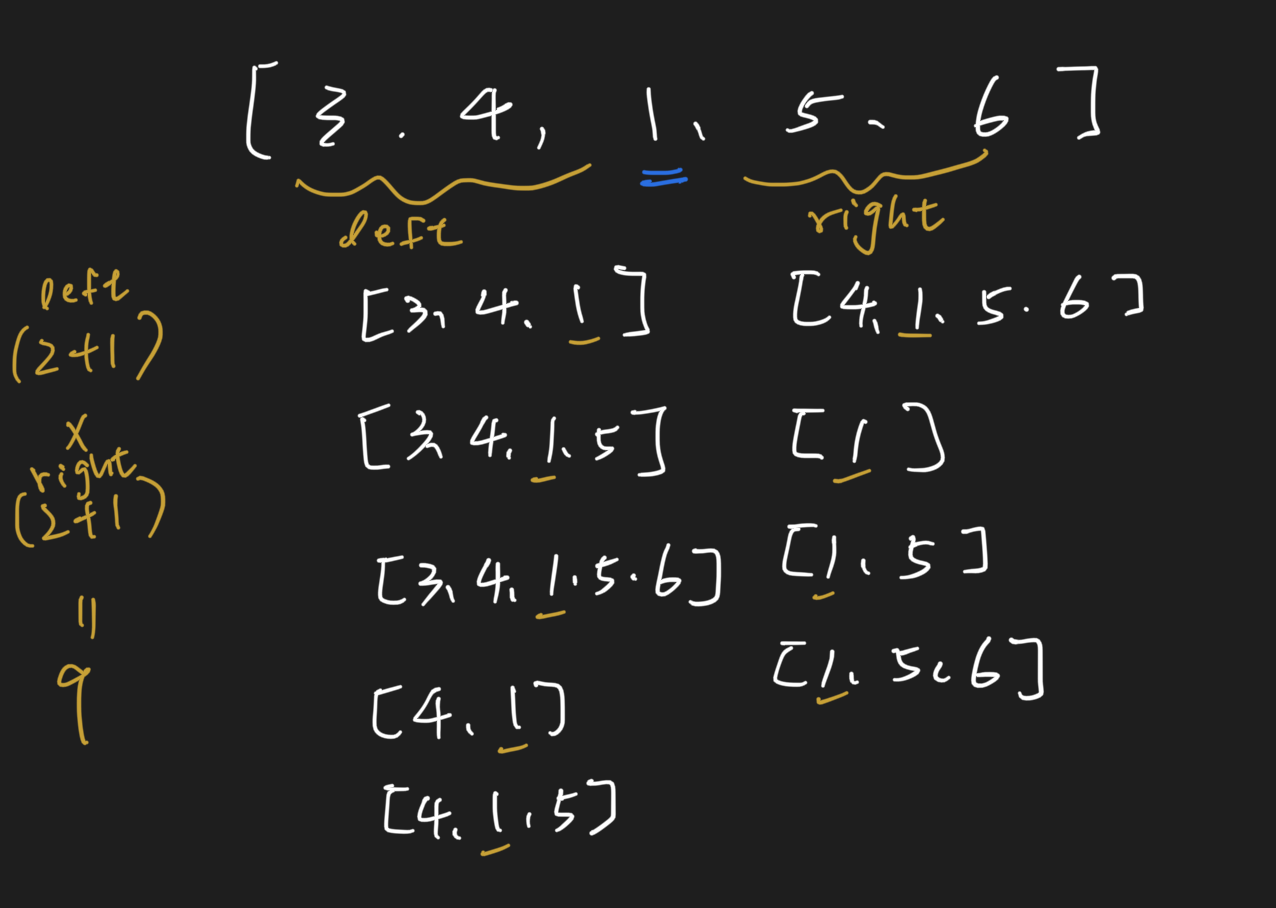 [ 3 . 4, 1、 5、 6 ]
left
right
left
(2+1)
x
right
(2+1)
=
9
[3、4、1]
[3、4、1、5]
[3、4、1.5.6]
[4、1]
[4、1、5]
[4、1、5.6]
[1]
[1、5]
[1、5、6]